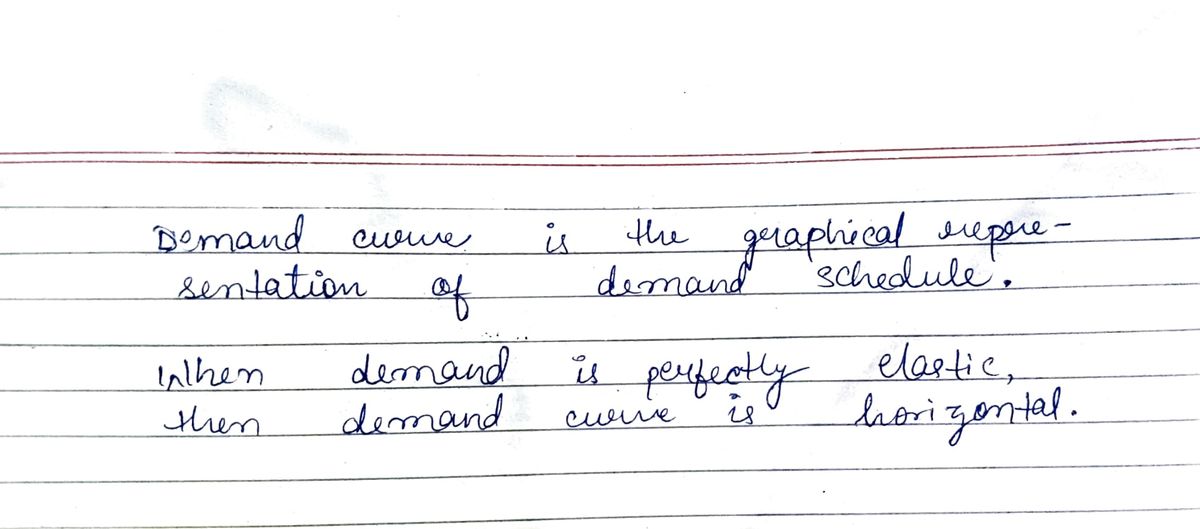 Demand curve is the graphical repre-
sentation of demand schedule.
When demand is perfectly elastic,
then demand curve is horizontal.